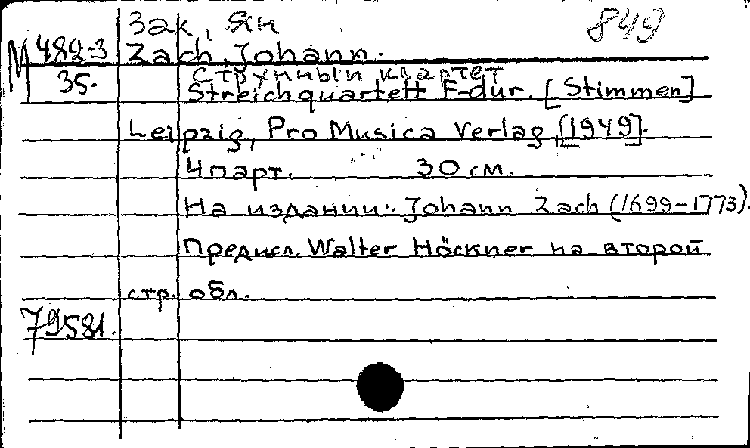 Зак, Ян 849
М 482-3 Zach, Johann.
35. Струнный квартет
Streichquartett F-dur. [Stimmen]
Leipzig, Pro Musica Verlag, [1949].
4 парт. 30 см.
На издании: Johann Zach (1699-1773).
Предисл. Walter Höckner на второй
стр. обл.
79581.